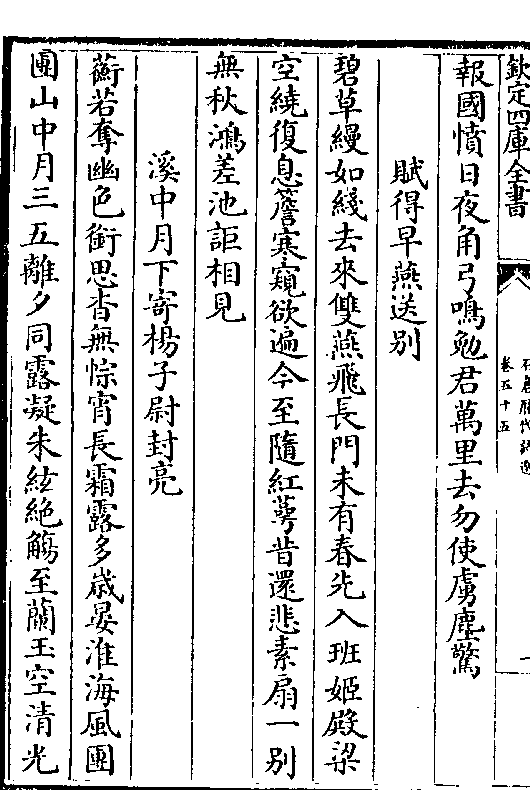 欽定四庫全書
卷五十五
報國憤日夜角弓鳴勉君萬里去勿使虜塵驚
賦得早燕送别
碧草縵如綫去來雙燕飛長門未有春先入班姬殿梁
空繞復息簷寒窺欲遍今至隨紅萼昔還悲素扇一别
無秋鴻差池詎相見
溪中月下寄楊子尉封亮
蘅若奪幽色銜思杳無悰宵長霜露多歲晏淮海風團
團山中月三五離夕同露凝朱絃絶觴至蘭玉空清光